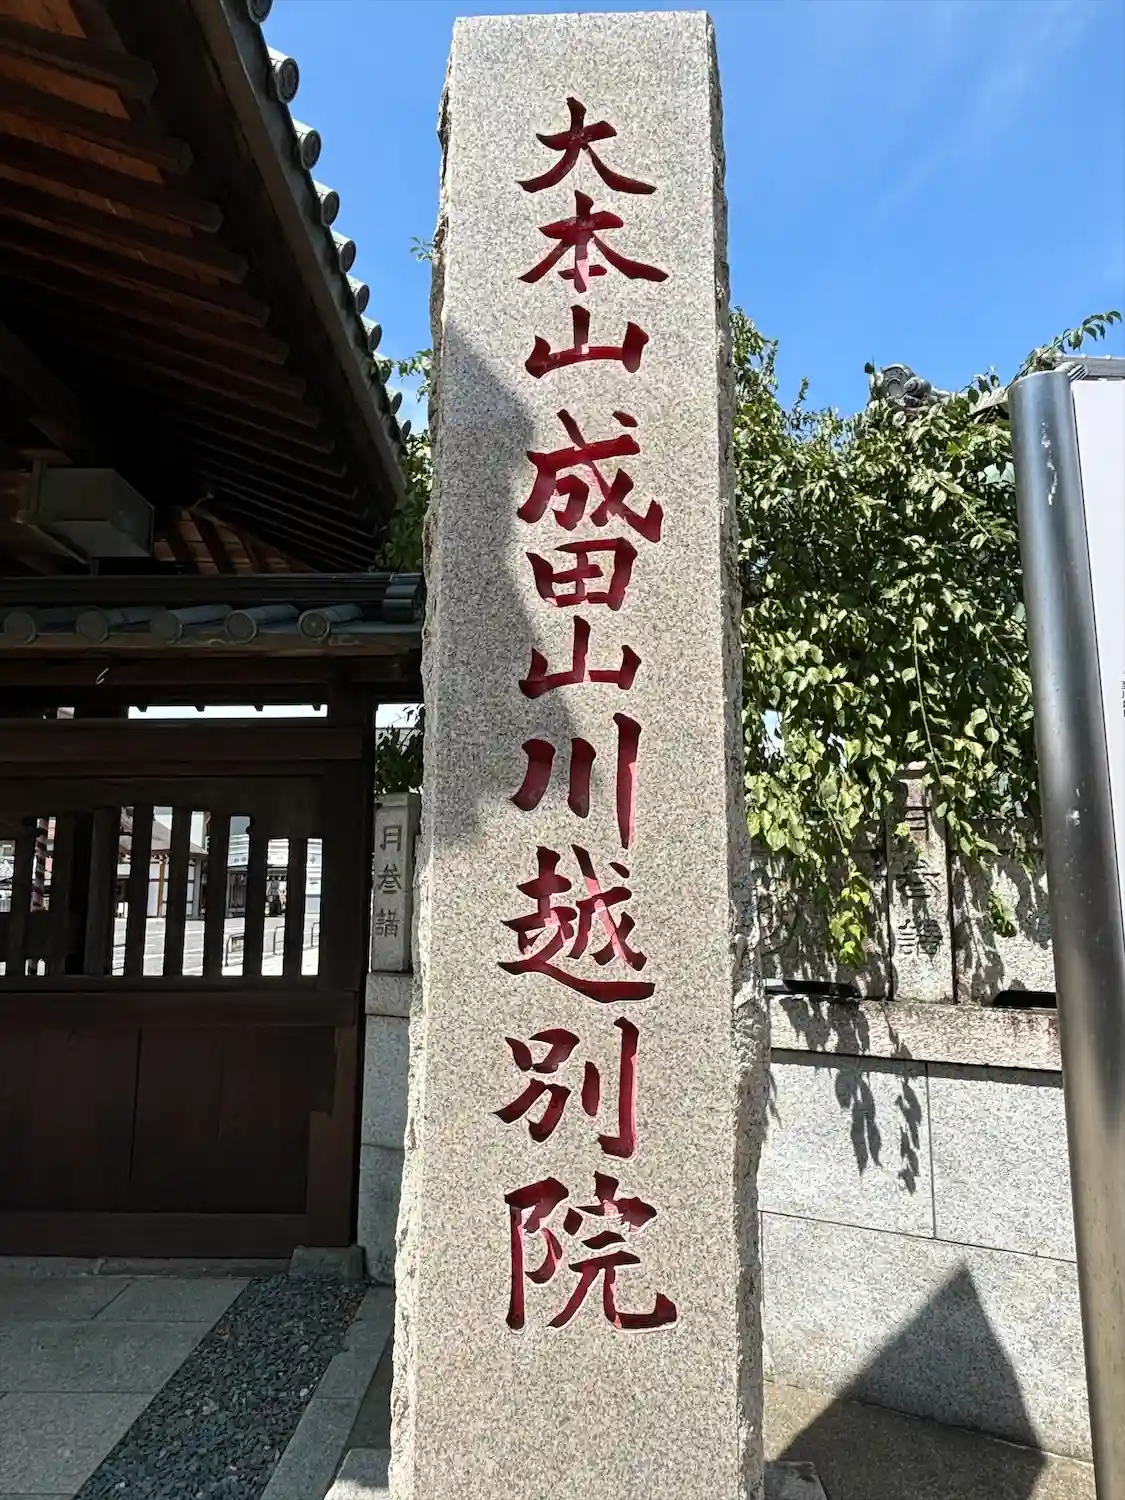 大本山成田山川越別院
月参講
月参講